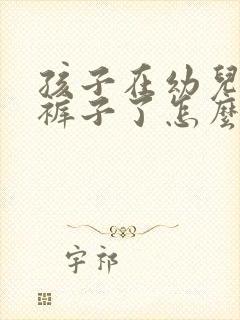 孩子在幼兒
裤子了怎麼
字祁